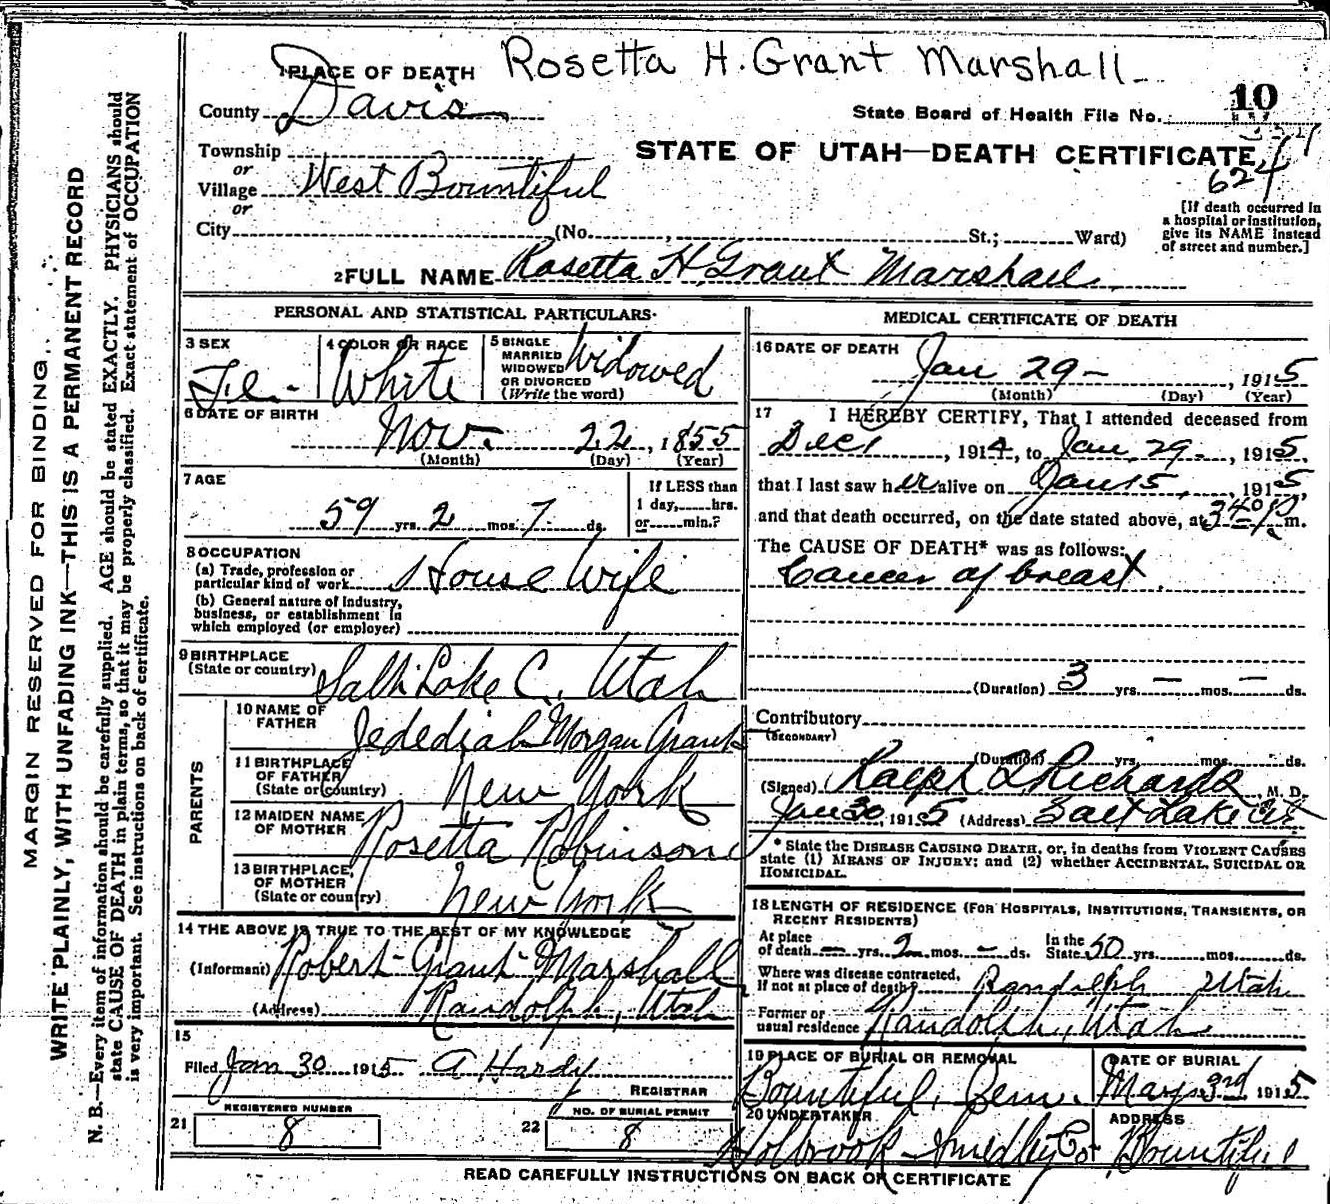 Rosetta H. Grant Marshall
1 PLACE OF DEATH
County Davis
10
State Board of Health File No.
Township
or
STATE OF UTAH—DEATH CERTIFICATE
624
Village West Bountiful
or
City (No. , St.; Ward)
[If death occurred in
a hospital or institution,
give its NAME instead
of street and number.]
2 FULL NAME Rosetta H Grant Marshall
PERSONAL AND STATISTICAL PARTICULARS
3 SEX
Fe. -
4 COLOR OR RACE
White
5 SINGLE
MARRIED
WIDOWED
OR DIVORCED
(Write the word)
Widowed
6 DATE OF BIRTH
Nov. 22, 1855
(Month) (Day) (Year)
7 AGE
59 yrs. 2 mos. 7 ds.
If LESS than
1 day, hrs.
or min.?
8 OCCUPATION
(a) Trade, profession or
particular kind of work House Wife
(b) General nature of industry,
business, or establishment in
which employed (or employer)
9 BIRTHPLACE
(State or country) Salt Lake C, Utah
PARENTS
10 NAME OF
FATHER Jedediah Morgan Grant
11 BIRTHPLACE
OF FATHER
(State or country) New York
12 MAIDEN NAME
OF MOTHER Rosetta Robinson
13 BIRTHPLACE
OF MOTHER
(State or country) New York
14 THE ABOVE IS TRUE TO THE BEST OF MY KNOWLEDGE
(Informant) Robert Grant Marshall
(Address) Randolph, Utah
15
Filed Jan 30 1915 A Hardy
REGISTRAR
REGISTERED NUMBER
21 8
NO. OF BURIAL PERMIT
22 8
MEDICAL CERTIFICATE OF DEATH
16 DATE OF DEATH
Jan 29 - , 1915
(Month) (Day) (Year)
17 I HEREBY CERTIFY, That I attended deceased from
Dec 1, 1914, to Jan 29, 1915,
that I last saw her alive on Jan 15, 1915,
and that death occurred, on the date stated above, at 340 P m.
The CAUSE OF DEATH* was as follows:
Cancer of breast
(Duration) 3 yrs. — mos. — ds.
Contributory
(SECONDARY)
(Duration) yrs. mos. ds.
(Signed) Ralph Richards, M. D.
Jan 30, 1915 (Address) Salt Lake
* State the DISEASE CAUSING DEATH, or, in deaths from VIOLENT CAUSES
state (1) MEANS OF INJURY; and (2) whether ACCIDENTAL, SUICIDAL OR
HOMICIDAL.
18 LENGTH OF RESIDENCE (FOR HOSPITALS, INSTITUTIONS, TRANSIENTS, OR
RECENT RESIDENTS)
At place
of death — yrs. 2 mos. — ds.
In the
State 50 yrs. mos. ds.
Where was disease contracted,
if not at place of death? Randolph Utah
Former or
usual residence Randolph, Utah
19 PLACE OF BURIAL OR REMOVAL
Bountiful, Cem.
DATE OF BURIAL
3rd 1915
20 UNDERTAKER
Holbrook - Smedley Co
ADDRESS
Bountiful
READ CAREFULLY INSTRUCTIONS ON BACK OF CERTIFICATE
MARGIN RESERVED FOR BINDING.
WRITE PLAINLY, WITH UNFADING INK—THIS IS A PERMANENT RECORD
N. B.—Every item of information should be carefully supplied. AGE should be stated EXACTLY. PHYSICIANS should
state CAUSE OF DEATH in plain terms, so that it may be properly classified. Exact statement of OCCUPATION
is very important. See instructions on back of certificate.